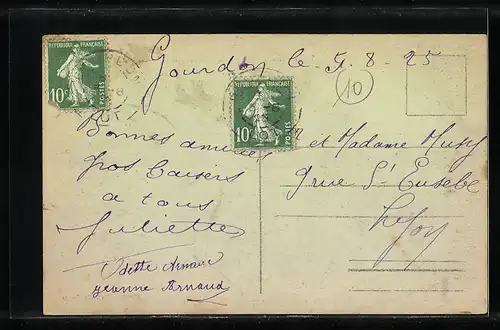 Gourdon le 5-8-25
10
REPUBLIQUE FRANÇAISE
10c POSTES
REPUBLIQUE FRANÇAISE
10c POSTES
Bonnes amitiés
Gros baisers
à tous
Juliette
Odette Arnaud
Jeanne Arnaud
et Madame
9 rue St Eusebe